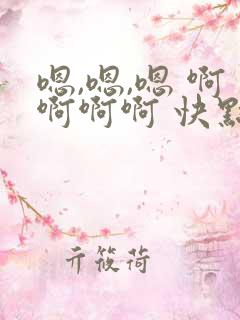 嗯,嗯,嗯 啊
啊啊啊 快點
亓筱荷